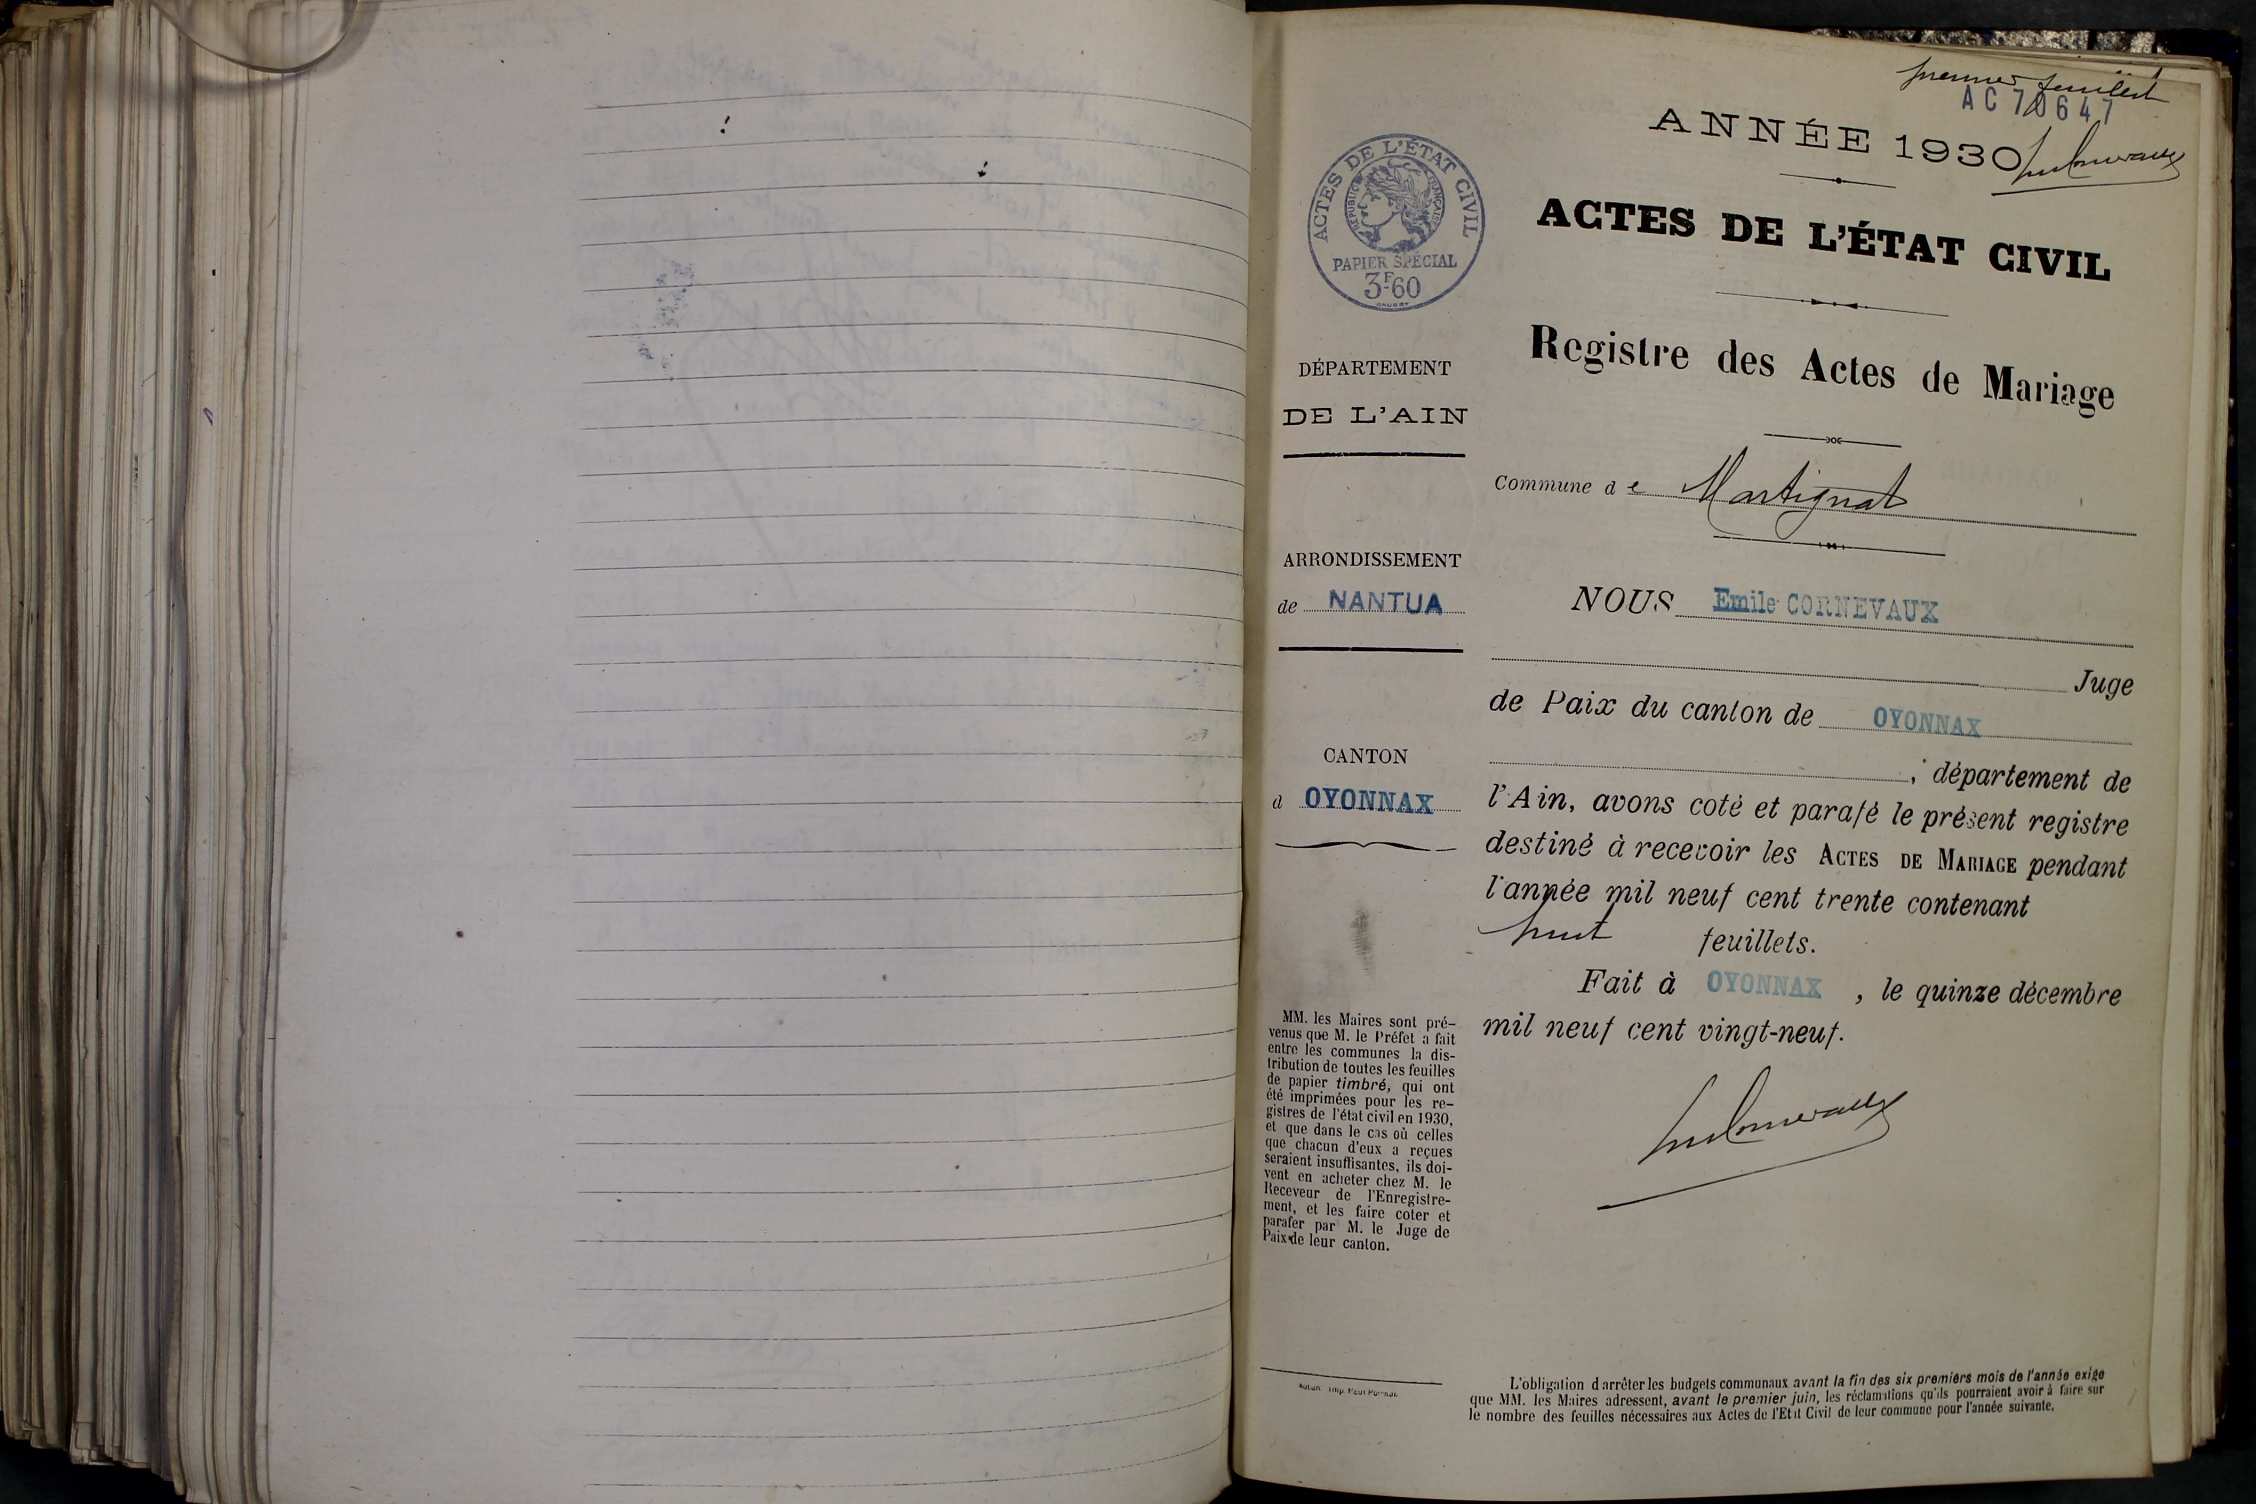 premier feuillet
AC 70647
ANNÉE 1930
ACTES DE L'ÉTAT CIVIL
RÉPUBLIQUE FRANÇAISE
PAPIER SPÉCIAL
3F60
ACTES DE L'ÉTAT CIVIL
Registre des Actes de Mariage
Commune d e Martignat
DÉPARTEMENT
DE L'AIN
ARRONDISSEMENT
de NANTUA
CANTON
d OYONNAX
MM. les Maires sont pré-
venus que M. le Préfet a fait
entre les communes la dis-
tribution de toutes les feuilles
de papier timbré, qui ont
été imprimées pour les re-
gistres de l'état civil en 1930,
et que dans le cas où celles
que chacun d'eux a reçues
seraient insuffisantes, ils doi-
vent en acheter chez M. le
Receveur de l'Enregistre-
ment, et les faire coter et
parafer par M. le Juge de
Paix de leur canton.
NOUS Emile CORNEVAUX
Juge
de Paix du canton de OYONNAX
, département de
l'Ain, avons coté et parafé le présent registre
destiné à recevoir les ACTES DE MARIAGE pendant
l'année mil neuf cent trente contenant
huit feuillets.
Fait à OYONNAX , le quinze décembre
mil neuf cent vingt-neuf.
L'obligation d'arrêter les budgets communaux avant la fin des six premiers mois de l'année exige
que MM. les Maires adressent, avant le premier juin, les réclamations qu'ils pourraient avoir à faire sur
le nombre des feuilles nécessaires aux Actes de l'Etat Civil de leur commune pour l'année suivante.